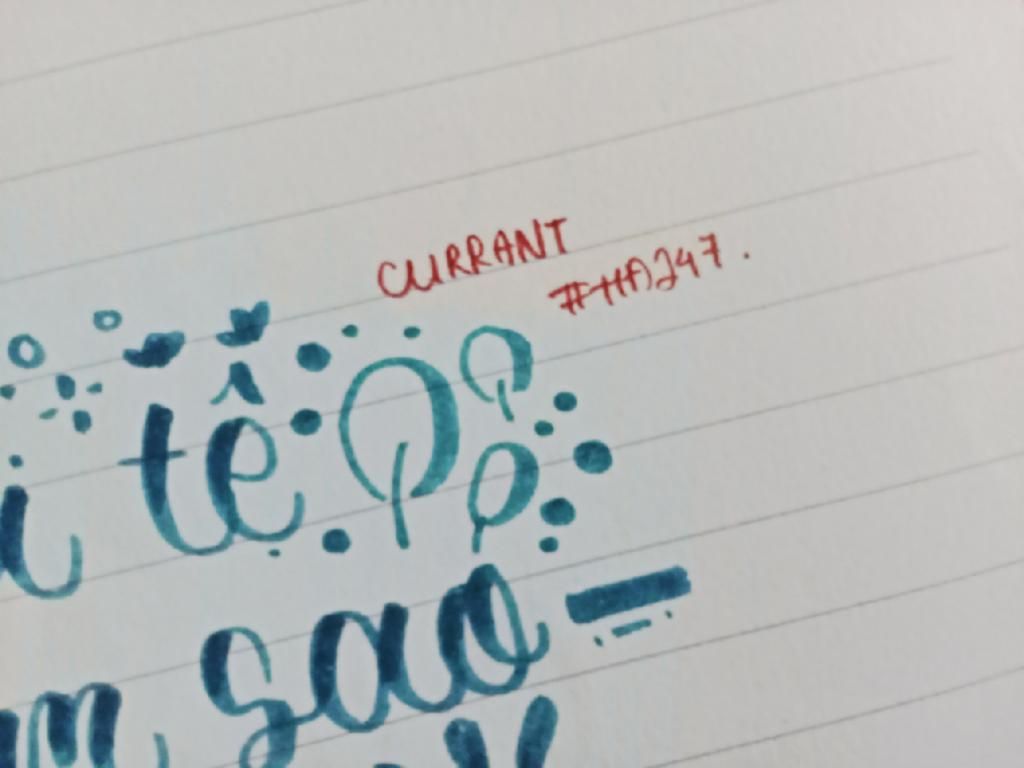 CURRANT
#HA247.
i tê
m sao